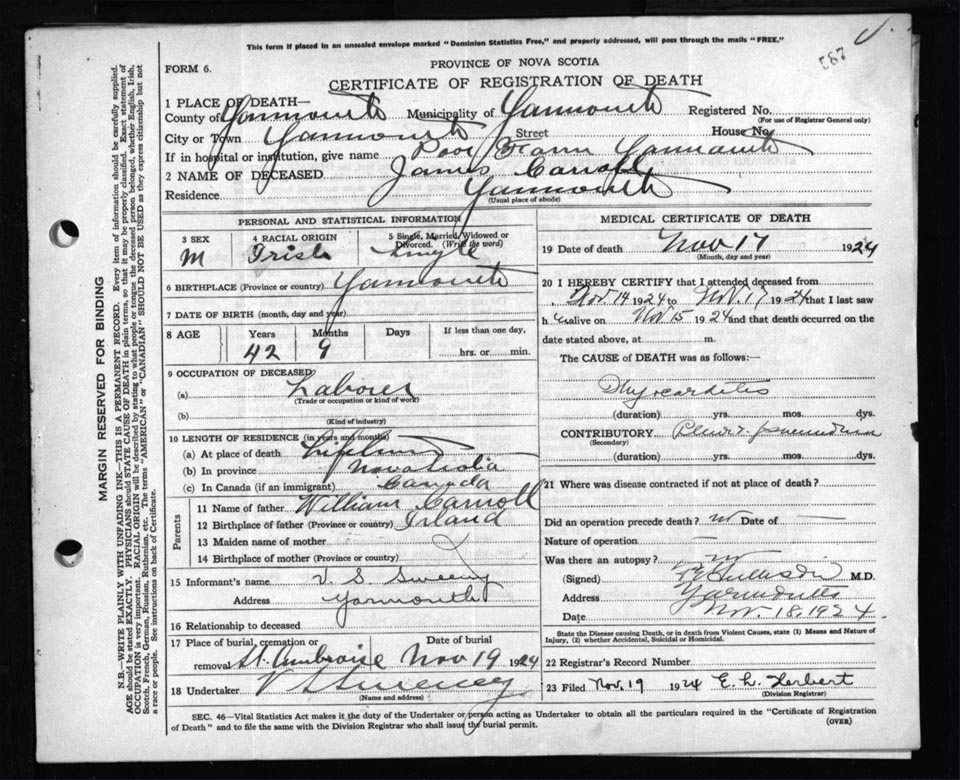 This form if placed in an unsealed envelope marked "Dominion Statistics Free," and properly addressed, will pass through the mails "FREE."
587
FORM 6.
PROVINCE OF NOVA SCOTIA
CERTIFICATE OF REGISTRATION OF DEATH
1 PLACE OF DEATH—
County of Yarmouth Municipality of Yarmouth Registered No.
(For use of Registrar General only)
City or Town Yarmouth Street House No.
If in hospital or institution, give name Poor Farm Yarmouth
2 NAME OF DECEASED James Carroll
Residence Yarmouth
(Usual place of abode)
PERSONAL AND STATISTICAL INFORMATION
3 SEX 4 RACIAL ORIGIN 5 Single, Married, Widowed or Divorced. (Write the word)
M Irish Single
6 BIRTHPLACE (Province or country) Yarmouth
7 DATE OF BIRTH (month, day and year)
8 AGE Years Months Days If less than one day,
42 9 hrs. or min.
9 OCCUPATION OF DECEASED
(a) Laborer
(Trade or occupation or kind of work)
(b)
(Kind of industry)
10 LENGTH OF RESIDENCE (in years and months)
(a) At place of death Lifetime
(b) In province Nova Scotia
(c) In Canada (if an immigrant) Canada
Parents
11 Name of father William Carroll
12 Birthplace of father (Province or country) Irland
13 Maiden name of mother
14 Birthplace of mother (Province or country)
15 Informant's name V. S. Sweeny
Address Yarmouth
16 Relationship to deceased
17 Place of burial, cremation or removal Date of burial
St. Ambroise Nov 19 1924
18 Undertaker V S Sweeney
(Name and address)
MEDICAL CERTIFICATE OF DEATH
19 Date of death Nov 17 1924
(Month, day and year)
20 I HEREBY CERTIFY that I attended deceased from
Nov. 14 1924 to Nov. 17 1924 that I last saw
h alive on Nov 15 1924 and that death occurred on the
date stated above, at m.
The CAUSE of DEATH was as follows:
Myocarditis
(duration) yrs. mos. dys.
CONTRIBUTORY
(Secondary)
(duration) yrs. mos. dys.
21 Where was disease contracted if not at place of death?
Did an operation precede death? no Date of —
Nature of operation —
Was there an autopsy? no
(Signed) M.D.
Address Yarmouth
Date Nov. 18, 1924.
State the Disease causing Death, or in death from Violent Causes, state (1) Means and Nature of
Injury, (2) whether Accidental, Suicidal or Homicidal.
22 Registrar's Record Number
23 Filed Nov. 19 1924 E. L. Herbert
(Division Registrar)
SEC. 46—Vital Statistics Act makes it the duty of the Undertaker or person acting as Undertaker to obtain all the particulars required in the "Certificate of Registration
of Death" and to file the same with the Division Registrar who shall issue the burial permit. (OVER)
MARGIN RESERVED FOR BINDING
N.B.—WRITE PLAINLY WITH UNFADING INK—THIS IS A PERMANENT RECORD. Every item of information should be carefully supplied.
AGE should be stated EXACTLY. PHYSICIANS should STATE CAUSE OF DEATH in plain terms, so that it may be properly classified. Exact statement of
OCCUPATION is very important. RACIAL ORIGIN will be described by stating to what people or tongue the deceased person belonged, whether English, Irish,
Scotch, French, German, Russian, Ruthenian, etc. The terms "AMERICAN" or "CANADIAN" SHOULD NOT BE USED as they express citizenship but not
a race or people. See instructions on back of Certificate.